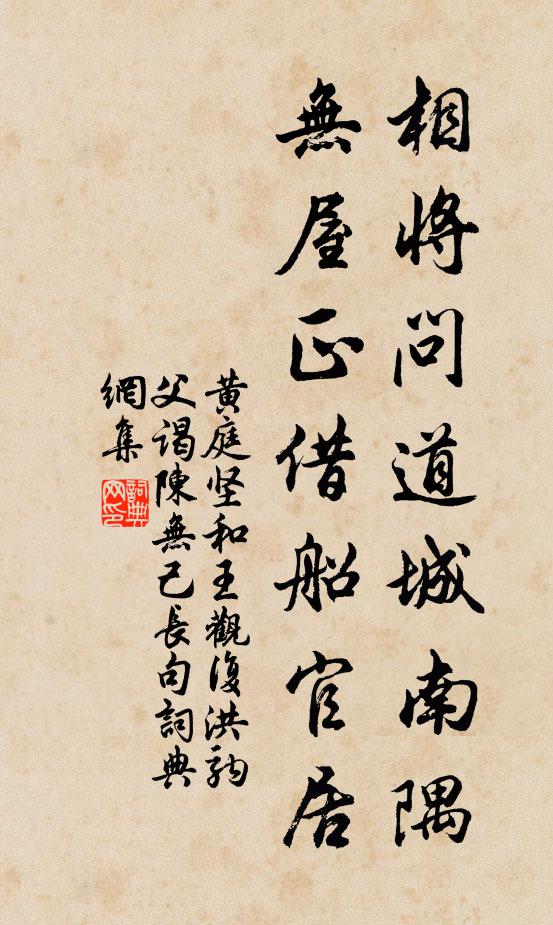 相將問道城南隅
無屋正借船官居
黃庭坚和王觀復洪駒
父謁陳無己長句詞典
網集
詞典
网印